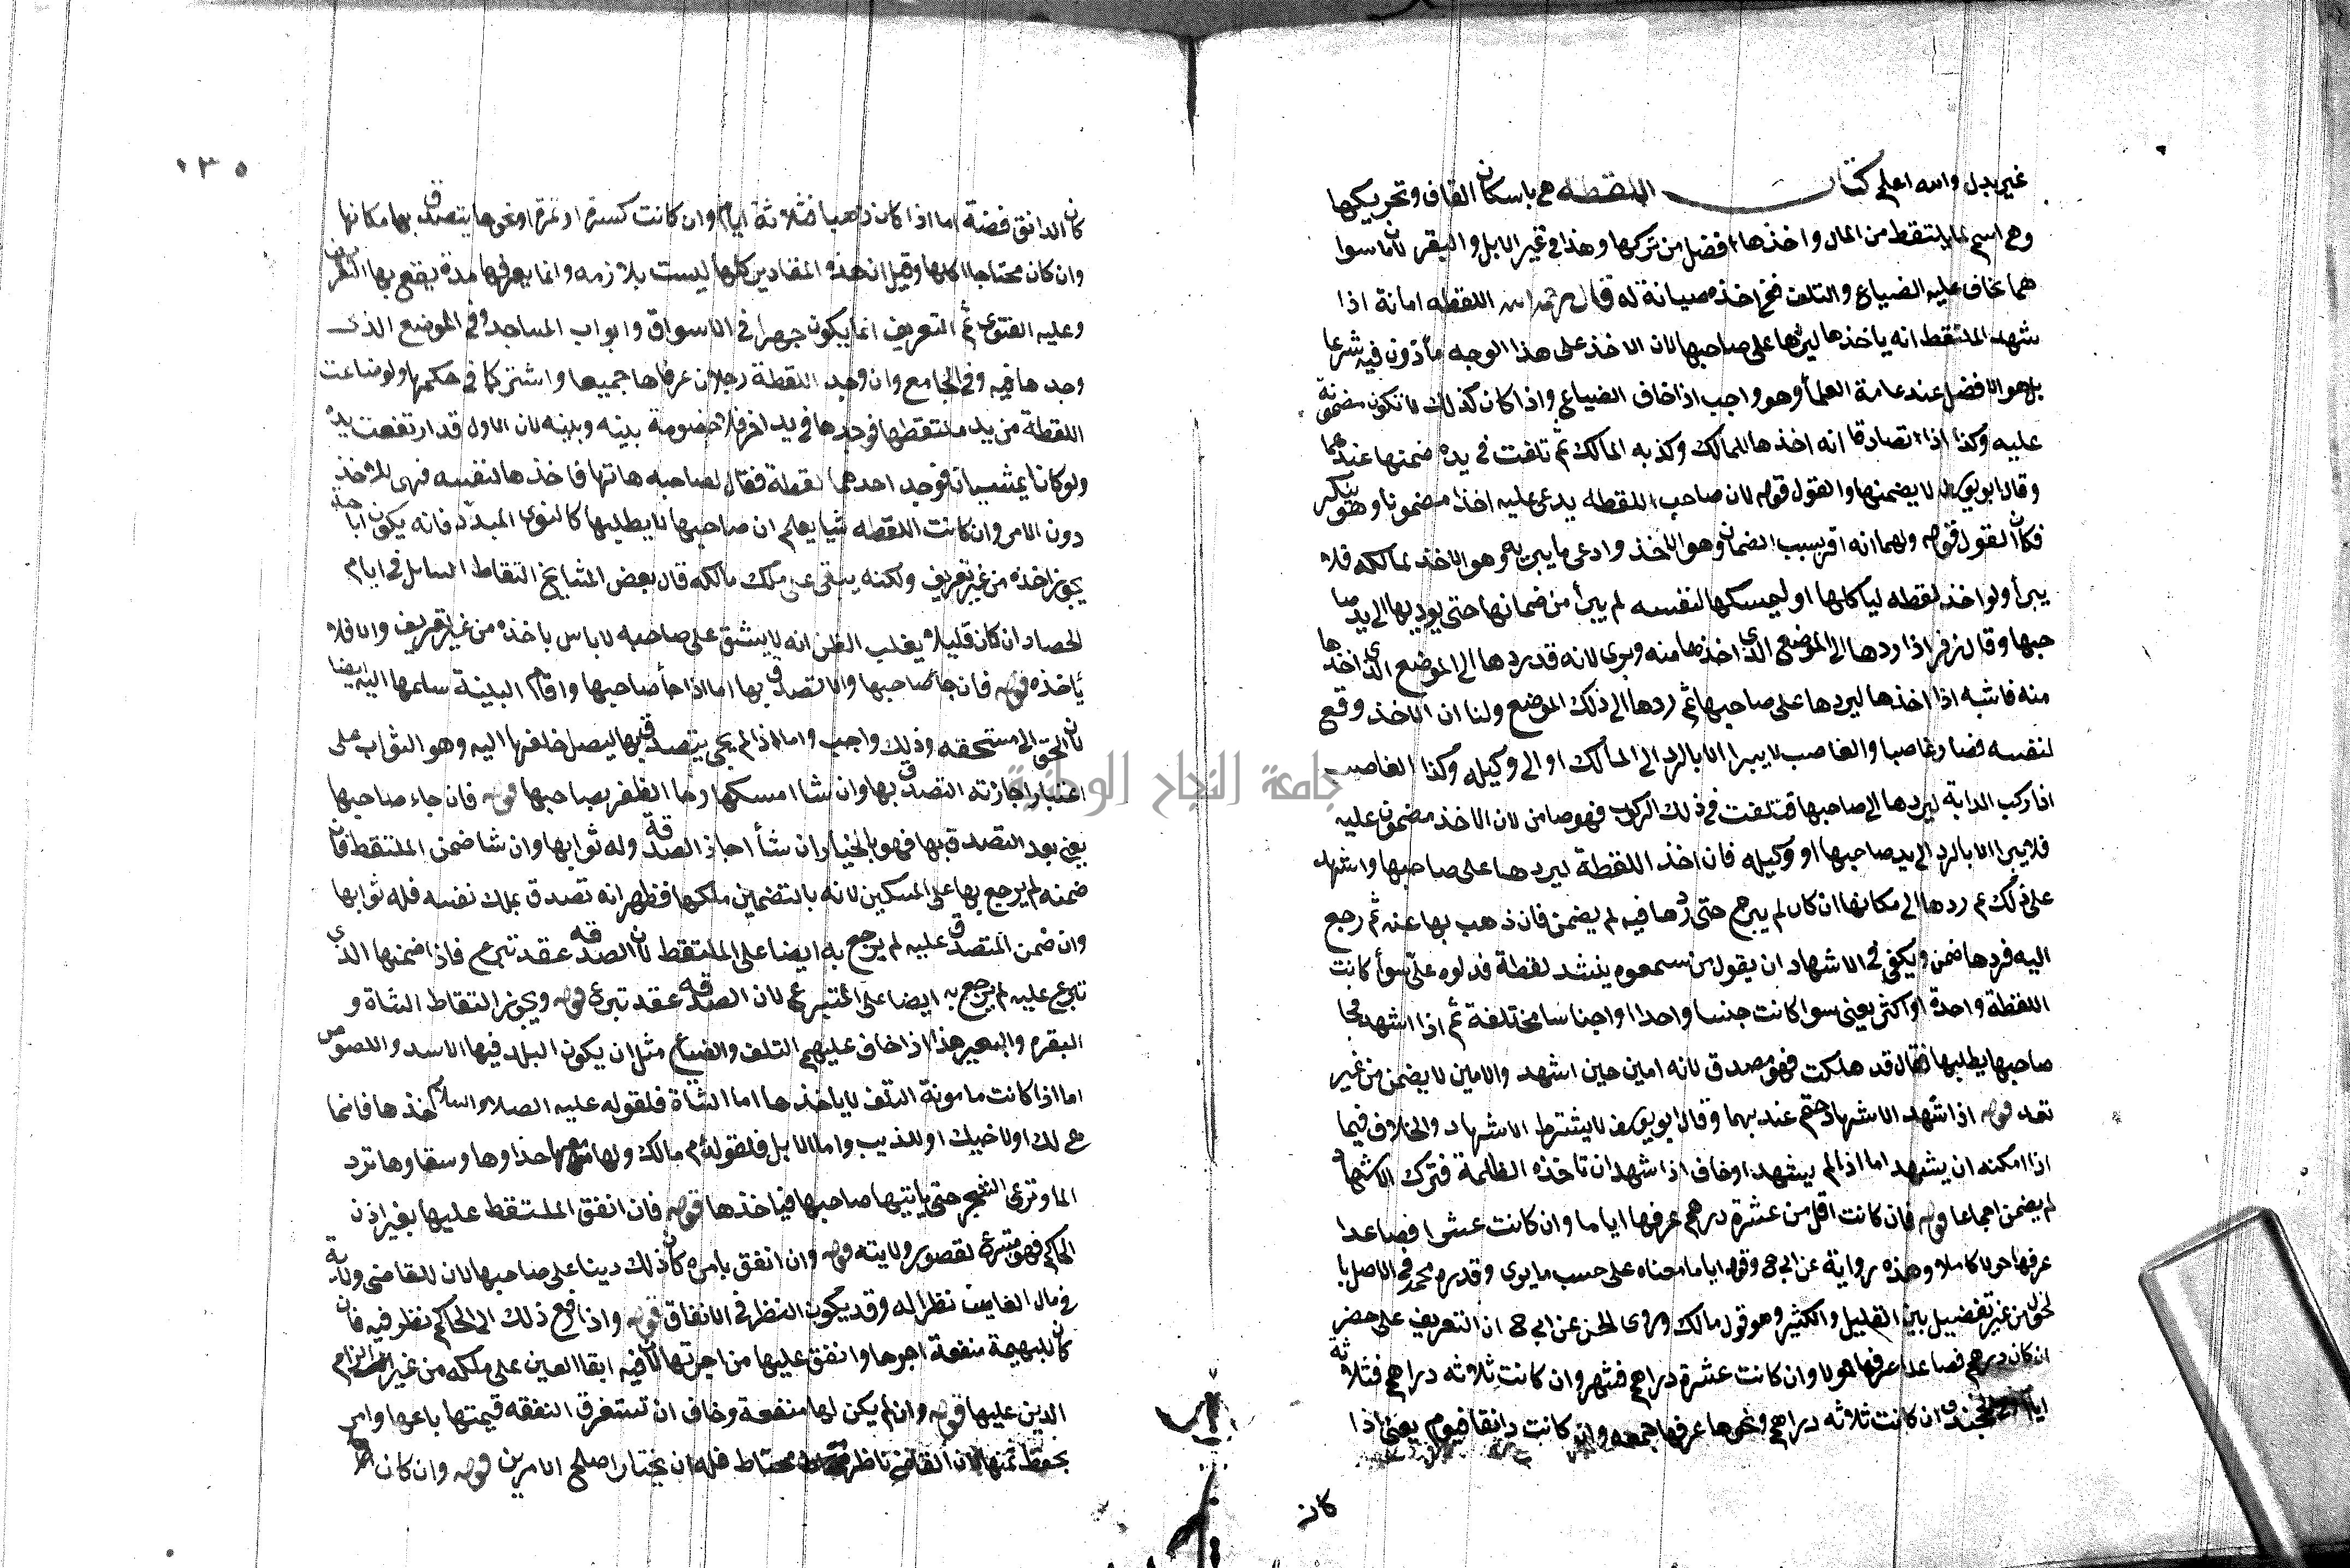 غير بدل والله اعلم كتاب اللقطه هي باسكان القاف وتحريكها
وهي اسم لما يلتقط من المال واخذها افضل من تركها وهذا في غير الابل والبقر لان ما سوا
هما يخاف عليه الضياع والتلف ففي اخذه صيانة له قال رحمه الله اللقطه امانة اذا
شهد الملتقط انه ياخذها ليردها على صاحبها لان الاخذ على هذا الوجه مأذون فيه شرعا
بل هو الافضل عند عامة العلمأ وهو واجب اذا خاف الضياع واذا كان كذلك لا تكون مضمونة
عليه وكذا اذا تصادقا انه اخذها للمالك وكذبه المالك ثم تلفت في يده ضمنها عندهما
وقال ابو يوسف لا يضمنها والقول قوله لان صاحب اللقطه يدعي عليه اخذا مضمونا وهو ينكر
فكان القول قوله ولهما انه اقر بسبب الضمان وهو الاخذ وادعى ما يبريه وهو الاخذ لمالكه فلا
يبرأ ولو اخذ لقطه لياكلها او ليمسكها لنفسه لم يبرأ من ضمانها حتى يوديها الى يد صا
حبها وقال زفر اذا ردها الى الموضع الذي اخذها منه وبرى لانه قد ردها الى الموضع الذي اخذها
منه فاشبه اذا اخذها ليردها على صاحبها ثم ردها الى ذلك الموضع ولنا ان الاخذ وقع
لنفسه فصار غاصبا والغاصب لا يبرا الا بالرد الى المالك او الى وكيله وكذا الغاصب
اذا ركب الدابة ليردها الى صاحبها فتلفت في ذلك الركوب فهو ضامن لان الاخذ مضمون عليه
فلا يبرا الا بالرد الى يد صاحبها او وكيله فان اخذ اللقطة ليردها على صاحبها واشهد
على ذلك ثم ردها الى مكانها ان كان لم يبرح حتى ردها فيه لم يضمن فان ذهب بها عنه ثم رجع
اليه فردها ضمن ويكفي في الاشهاد ان يقول من سمعتوه ينشد لقطة فدلوه علي سوأ كانت
اللقطة واحدة او اكثر يعني سوا كانت جنسا واحدا او اجناسا مختلفة ثم اذا اشهد فجا
صاحبها يطلبها فقال قد هلكت فهو مصدق لانه امين حين اشهد والامين لا يضمن من غير
تعد قوله اذا شهد الاشهاد حتم عندهما وقال ابو يوسف لا يشترط الاشهاد والخلاف فيما
اذا امكنه ان يشهد اما اذا لم يشهد او خاف اذا شهد ان تاخذه الظلمة فترك الاشهاد
لم يضمن اجماعا قوله فان كانت اقل من عشرة درهم عرفها اياما وان كانت عشرا فصاعدا
عرفها حولا كاملا وهذه رواية عن ابي ح وقوله اياما معناه على حسب ما يرى وقدره محمد في الاصل با
لحول من غير تفضيل بين القليل والكثير وهو قول مالك وروى الحسن عن ابي ح ان التعريف على
ان كان درهم فصاعدا عرفها حولا وان كانت عشرة دراهم فشهر وان كانت ثلاثه دراهم فثلاثة
ايام ان كانت ثلاثه دراهم ونحوها عرفها جمعه وان كانت دانقا فيوم يعني اذا
كان
١٣٥
كان الدانق فضة اما اذا كان ذهبا فثلاثة ايام وان كانت كسرة او تمرة او نحوها يتصدق بها مكانها
وان كان محتاجا اكلها وقيل ان هذه المقادير كلها ليست بلازمه وانما يعرفها مدة يقع بها التعريف
وعليه الفتوى ثم التعريف انما يكون جهرا في الاسواق وابواب المساجد وفي الموضع الذي
وجدها فيه وفي الجامع وان وجد اللقطة رجلان عرفاها جميعا واشتركا في حكمها ولو ضاعت
اللقطة من يد ملتقطها فوجدها في يد اخر فلا خصومة بينه وبينه لان الاول قد ارتفعت يده
ولو كانا يمشيان فوجد احدهما لقطة فقال لصاحبه هاتها فاخذها لنفسه فهي للاخذ
دون الامر وان كانت اللقطه شيا يعلم ان صاحبها لا يطلبها كالنوى المبدد فانه يكون اباحة
يجوز اخذه من غير تعريف ولكنه يبقى على ملك مالكه قال بعض المشايخ التقاط السنابل في ايام
الحصاد ان كان قليلا يغلب الظن انه لا يشق على صاحبه لا باس باخذه من غير تعريف والا فلا
ياخذه قوله فان جأ صاحبها والا تصدق بها اما اذا جأ صاحبها واقام البينة سلمها اليه ايضا
لان الحق الى مستحقه وذلك واجب واما اذا لم يجي يتصدق بها ليصل خلفها اليه وهو الثواب على
اعتبار اجازته التصدق بها وان شا امسكها رجا الظفر بصاحبها قوله فان جاء صاحبها
يعني بعد التصدق بها فهو بالخيار ان شأ اجاز الصدقة وله ثوابها وان شا ضمن الملتقط فان
ضمنه لم يرجع بها على المسكين لانه بالتضمين ملكها فظهر انه تصدق بملك نفسه فله ثوابها
وان ضمن المتصدق عليه لم يرجع به ايضا على الملتقط لان الصدقه عقد تبرع فاذا ضمنها الذي
تبرع عليه لم يرجع به ايضا على المتبرع لان الصدقه عقد تبرع قوله ويجوز التقاط الشاة و
البقره والبعير هذا اذا خاف عليهم التلف والضياع مثل ان يكون البلد فيها الاسد واللصوص
اما اذا كانت مامونة التلف لا ياخذها اما الشاة فلقوله عليه الصلاه والسلام خذها فانما
هي لك او لاخيك او للذيب واما الابل فلقوله م مالك ولها معها حذاوها وسقاوها ترد
الما وترعى الشجر حتى ياتيها صاحبها فياخذها قوله فان انفق الملتقط عليها بغير اذن
الحاكم فهو متبرع لقصور ولايته قوله وان انفق بامره كان ذلك دينا على صاحبها لان للقاضي ولاية
في مال الغايب نظرا له وقد يكون النظر في الانفاق قوله واذا رفع ذلك الى الحاكم نظر فيه فان
كان للبهيمة منفعة اجرها وانفق عليها من اجرتها لان فيه ابقا العين على ملكه من غير الزام
الدين عليها قوله وان لم يكن لها منفعة وخاف ان تستغرق النفقه قيمتها باعها وامر
بحفظ ثمنها لان القاضي ناظر محتاط فله ان يختار اصلح الامرين قوله وان كان
جامعة النجاح الوطنية